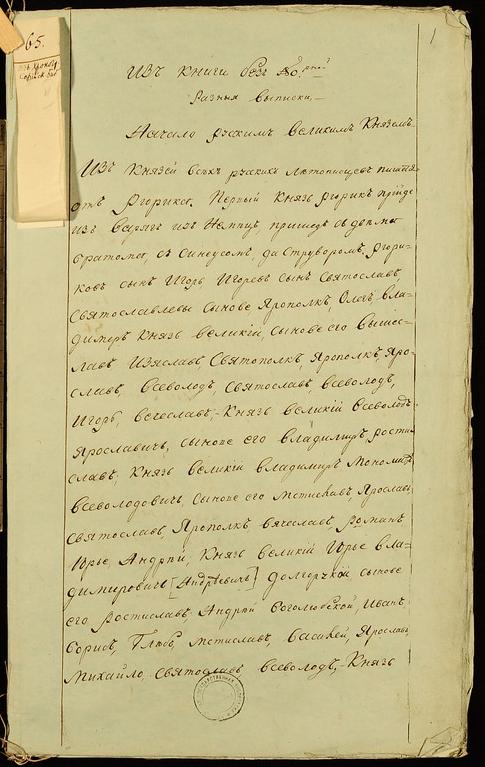 65.
1
Изъ книги безъ
Разныя выписки,—
Начало рускимъ великимъ Княземъ
Изъ Князей всехъ рускихъ летописцевъ
отъ Рюрика. Первый Князь Рюрикъ прїиде
изъ Варягъ изъ Немецъ, пришедъ съ двемы
братома, съ Синеусомъ, да Струворомъ. Рюри-
ковъ сынъ Игорь Игоревъ сынъ Святославъ,
Святославлевы сынове Ярополкъ, Олегъ вла-
димеръ Князь великїй, сынове его Вышес-
лавъ Изяславъ, Святополкъ, Ярополкъ, Яро-
славъ, Всеволодъ, Святославъ, Всеволодъ,
Игорь, вечеславъ,—Князь великїй Всеволодъ
Ярославичь, сынове его владимиръ, рости-
славъ, Князь великїй владимиръ Мономахъ
всеволодовичь, сынове его Мстиславъ, Ярославъ,
святославъ, Ярополкъ вячеславъ, Романъ
Юрье, Андрѣй, Князь великїй Юрье вла-
димировичь [Андрѣевичь] долгорукой сынове
его Ростиславъ, Андрѣй боголюбской, Иванъ,
борисъ, Глѣбъ, мстиславъ, василей, Ярославъ,
Михайло, святославъ, всеволодъ,—Князь